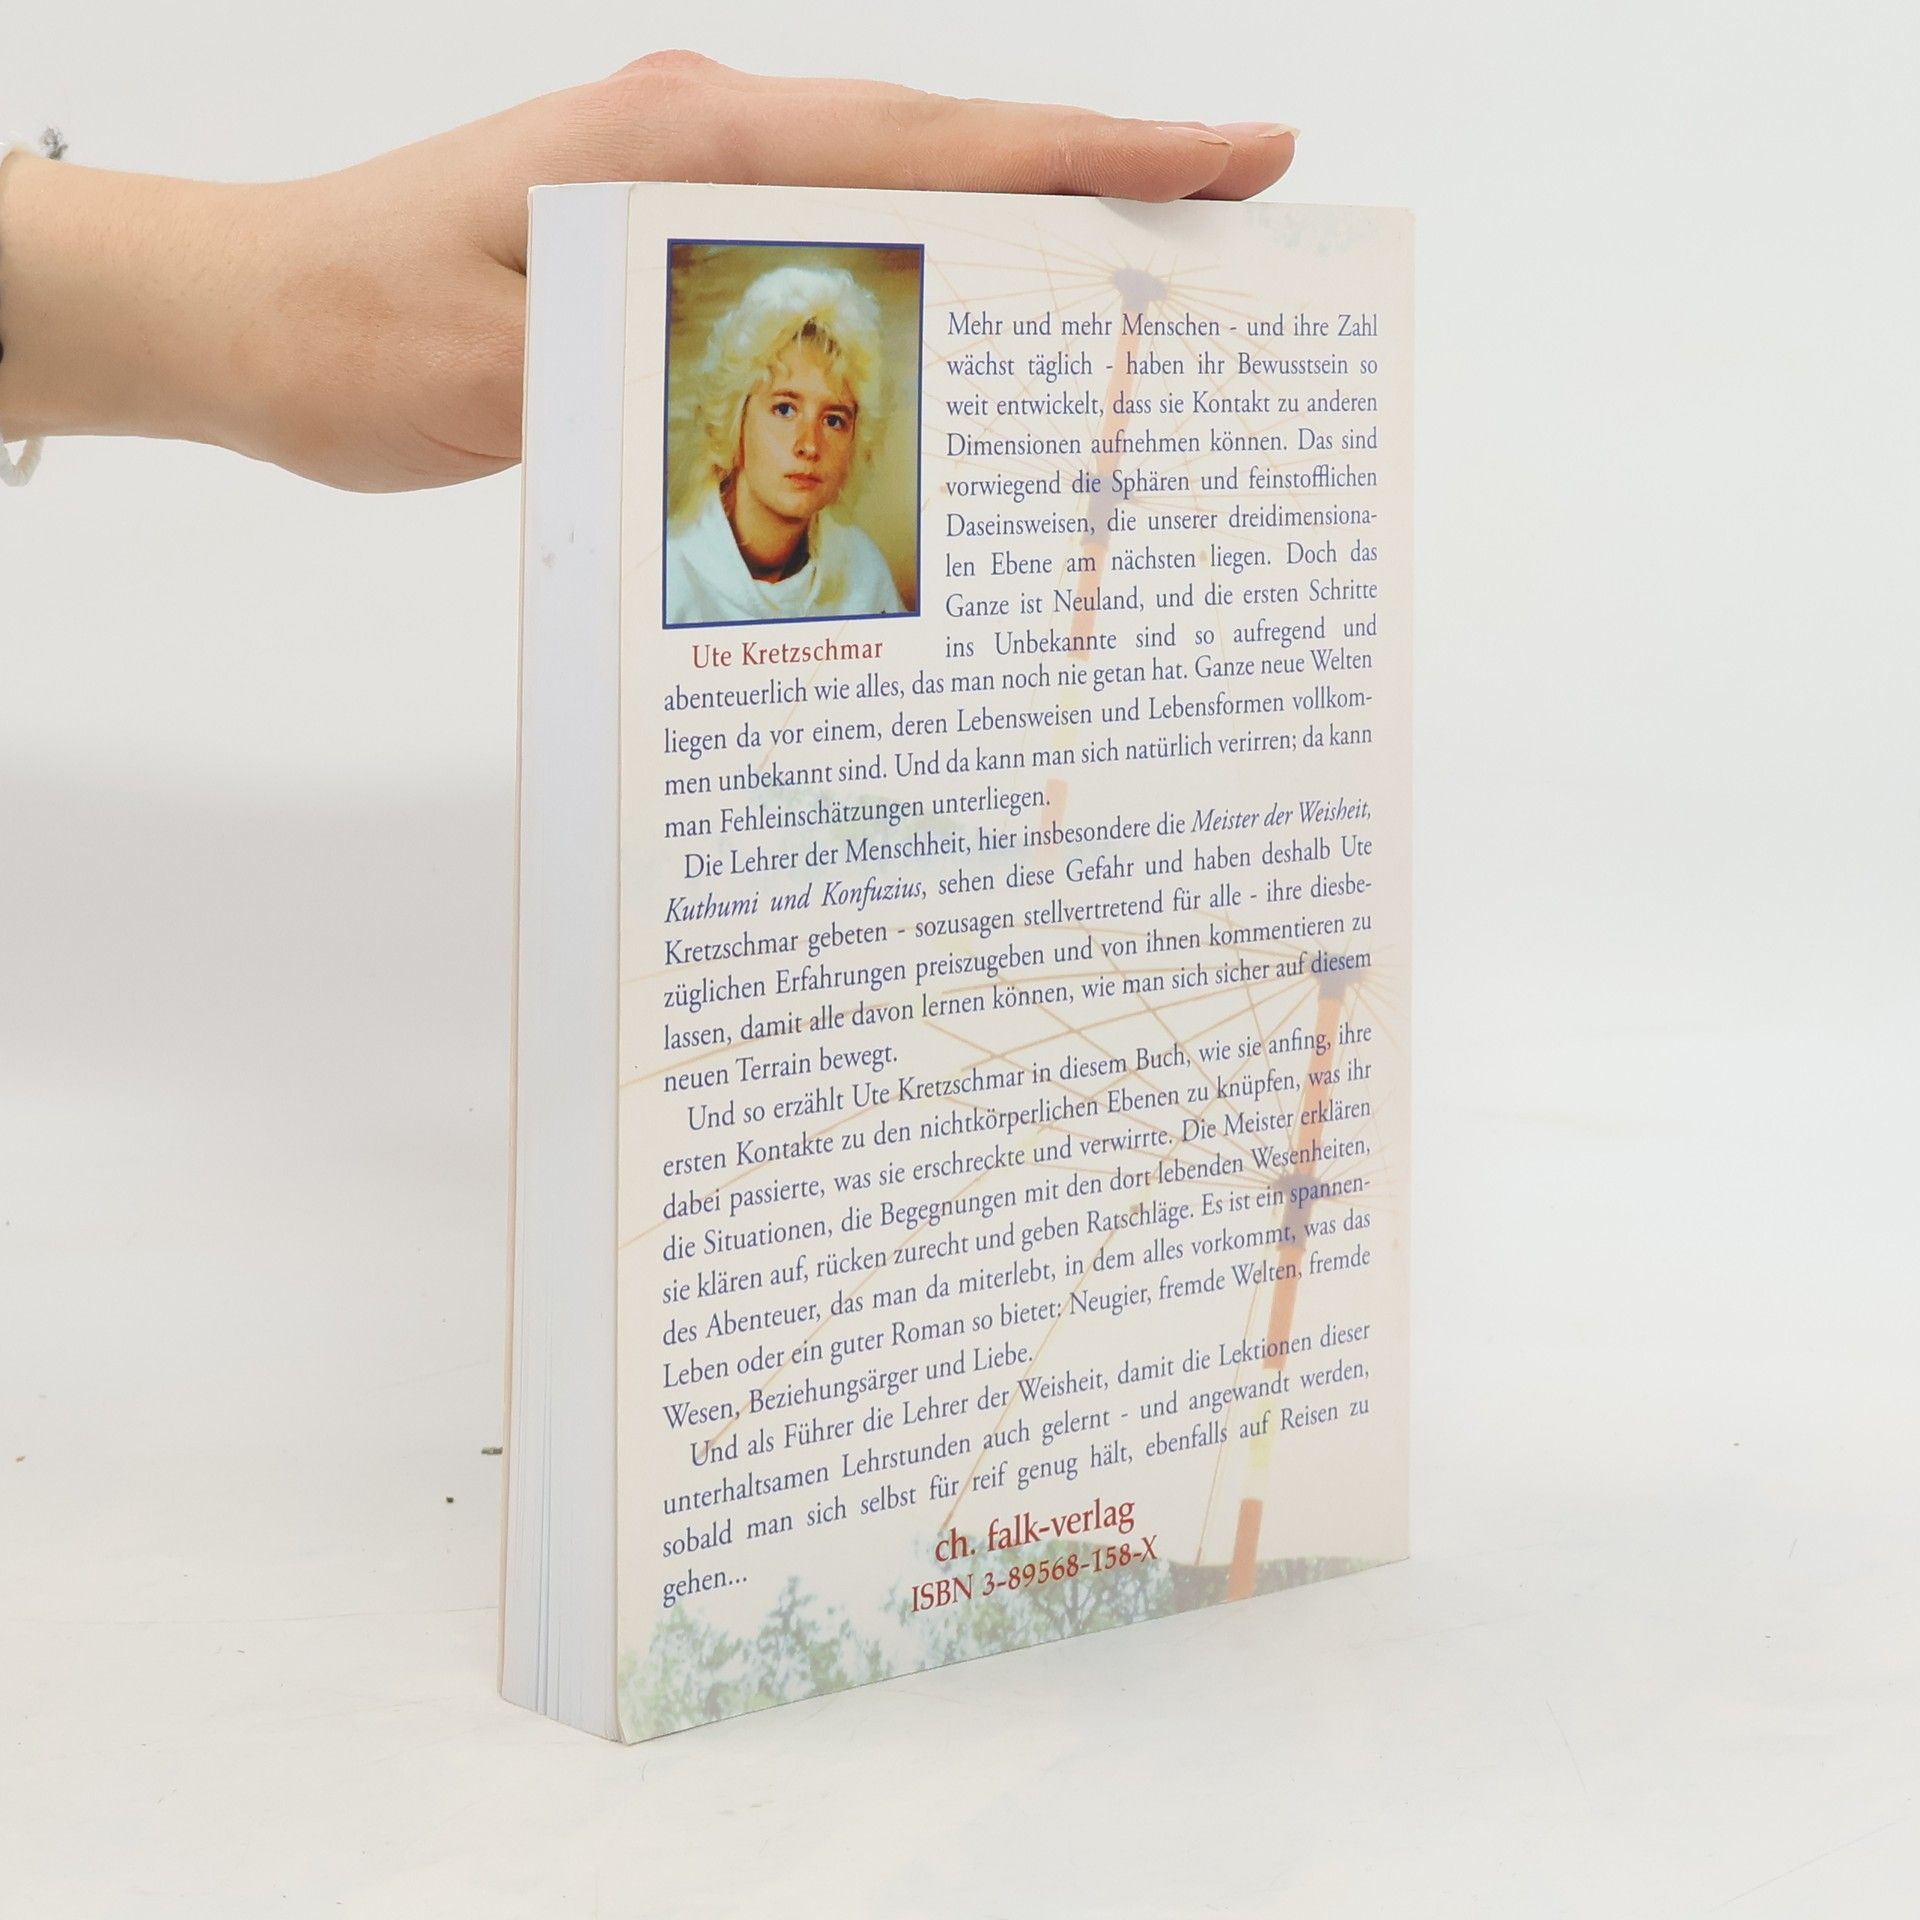 Mehr und mehr Menschen - und ihre Zahl
wächst täglich - haben ihr Bewusstsein so
weit entwickelt, dass sie Kontakt zu anderen
Dimensionen aufnehmen können. Das sind
vorwiegend die Sphären und feinstofflichen
Daseinsweisen, die unserer dreidimensiona-
len Ebene am nächsten liegen. Doch das
Ganze ist Neuland, und die ersten Schritte
ins Unbekannte sind so aufregend und
Ute Kretzschmar
abenteuerlich wie alles, das man noch nie getan hat. Ganze neue Welten
liegen da vor einem, deren Lebensweisen und Lebensformen vollkom-
men unbekannt sind. Und da kann man sich natürlich verirren; da kann
man Fehleinschätzungen unterliegen.
Die Lehrer der Menschheit, hier insbesondere die Meister der Weisheit,
Kuthumi und Konfuzius, sehen diese Gefahr und haben deshalb Ute
Kretzschmar gebeten - sozusagen stellvertretend für alle - ihre diesbe-
züglichen Erfahrungen preiszugeben und von ihnen kommentieren zu
lassen, damit alle davon lernen können, wie man sich sicher auf diesem
neuen Terrain bewegt.
Und so erzählt Ute Kretzschmar in diesem Buch, wie sie anfing, ihre
ersten Kontakte zu den nichtkörperlichen Ebenen zu knüpfen, was ihr
dabei passierte, was sie erschreckte und verwirrte. Die Meister erklären
die Situationen, die Begegnungen mit den dort lebenden Wesenheiten,
sie klären auf, rücken zurecht und geben Ratschläge. Es ist ein spannen-
des Abenteuer, das man da miterlebt, in dem alles vorkommt, was das
Leben oder ein guter Roman so bietet: Neugier, fremde Welten, fremde
Wesen, Beziehungsärger und Liebe.
Und als Führer die Lehrer der Weisheit, damit die Lektionen dieser
unterhaltsamen Lehrstunden auch gelernt - und angewandt werden,
sobald man sich selbst für reif genug hält, ebenfalls auf Reisen zu
gehen...
ch. falk-verlag
ISBN 3-89568-158-X